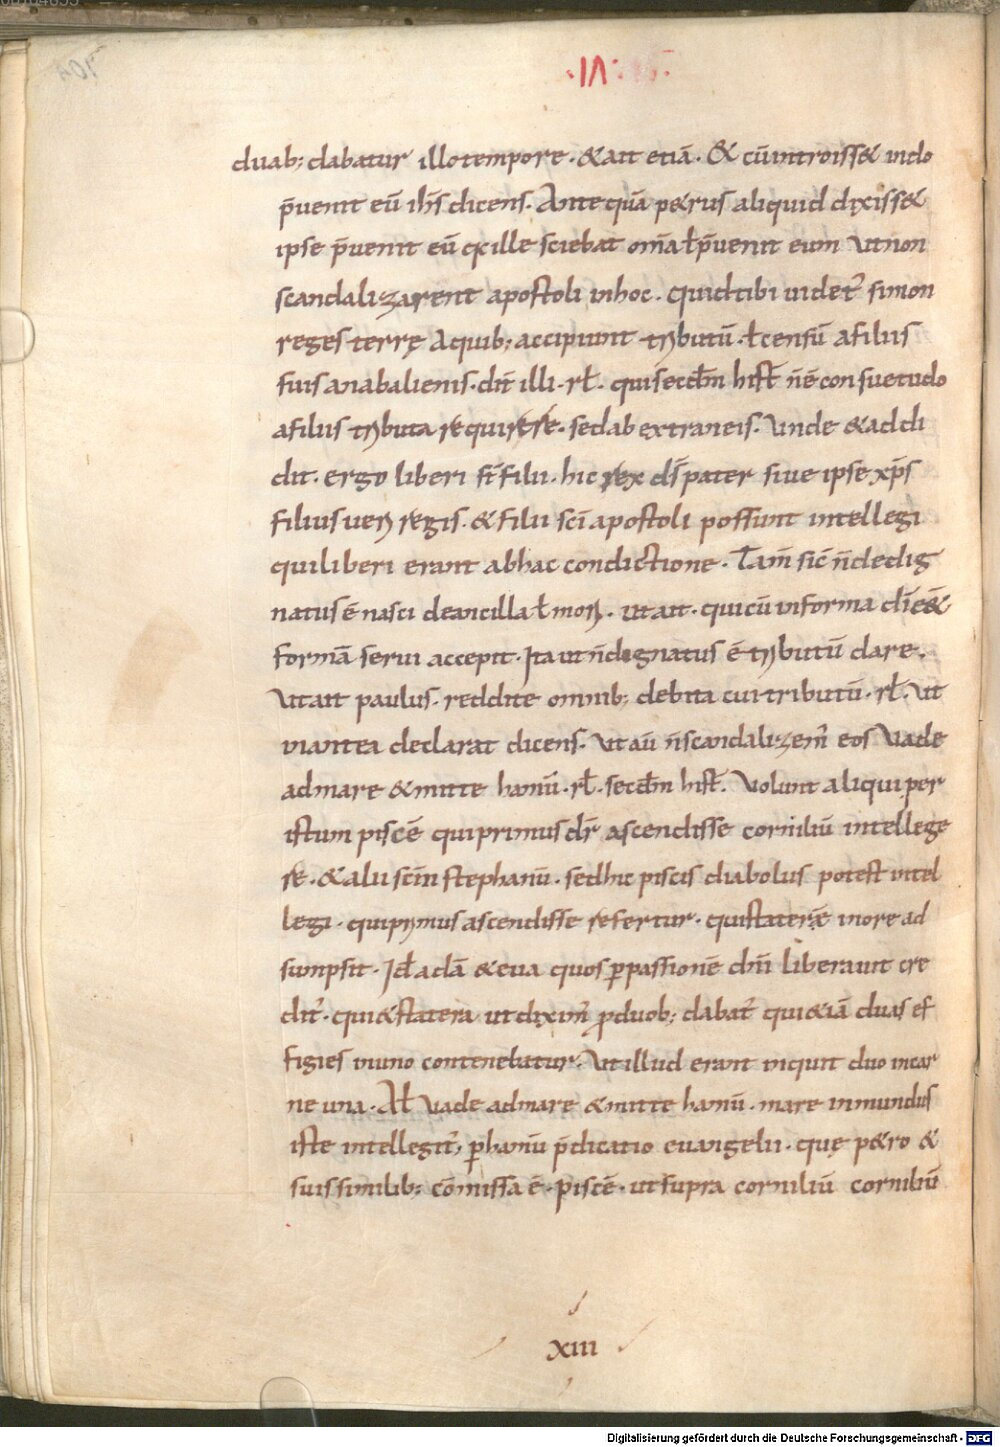 ·IΛ·
duab; dabatur illotempore · &ait etiā · & cūintroiss& indo
p̄uenit eū ih̄s dicens. Antequā p&rus aliquid dixiss&
ipse p̄uenit eū qille sciebat om̄a ł p̄uenit eum Vtnon
scandalizarent apostoli inhoc. Quidtibi uidet᷒ simon
reges terrę Aquib; accipiunt tributū ·ł censū afiliis
suis anabalienis · dīt illi · rł · quisecd̄m hist̄ n̄ē consuetudo
afiliis tributa requirere · sedabextraneis. Vnde &addi
dit · ergo liberi st̄ filii · hic rex ds̄ pater siue ipse xp̄s
filiusueri regis · &filii sc̄i apostoli possunt intellegi
quiliberi erant abhac condictione · Tam̄ sic n̄dedig
natusē nasci deancilla ł mori · utait · quicū informa dī e&
formā serui accepit · Ita ut n̄dignatus ē tributū dare ·
Vtait paulus · reddite omnib; debita cui tributū · rł · Vt
inantea declarat dicens · Vt aū n̄scandalizem᷒ eos Vade
admare &mitte hamū · rł · secd̄m hist̄. Volunt aliqui per
istum piscē quiprimus dr̄ ascendisse corniliū intellege
re · &alii sc̄m stephanū · sedhic piscis diabolus potest intel
legi · quiprimus ascendisse refertur · quistaterā inore ad
sumpsit · Id adā &eua quos p̱passionē dn̄i liberauit cre
dit᷒ · qui&statera ut dixim᷒ p̱duob; dabat᷒ qui&iā duas ef
figies inuno contenebatur. Vt illud erant inquit duo incar
ne una · Ał Vade admare &mitte hamū · mare inmundus
iste intellegit᷒, p̱hamū p̄dicatio euangelii · quę p&ro &
suissimilib; cōmissa ē · piscē · ut supra corniliū corniliū
xiii
Digitalisierung gefördert durch die Deutsche Forschungsgemeinschaft - DFG